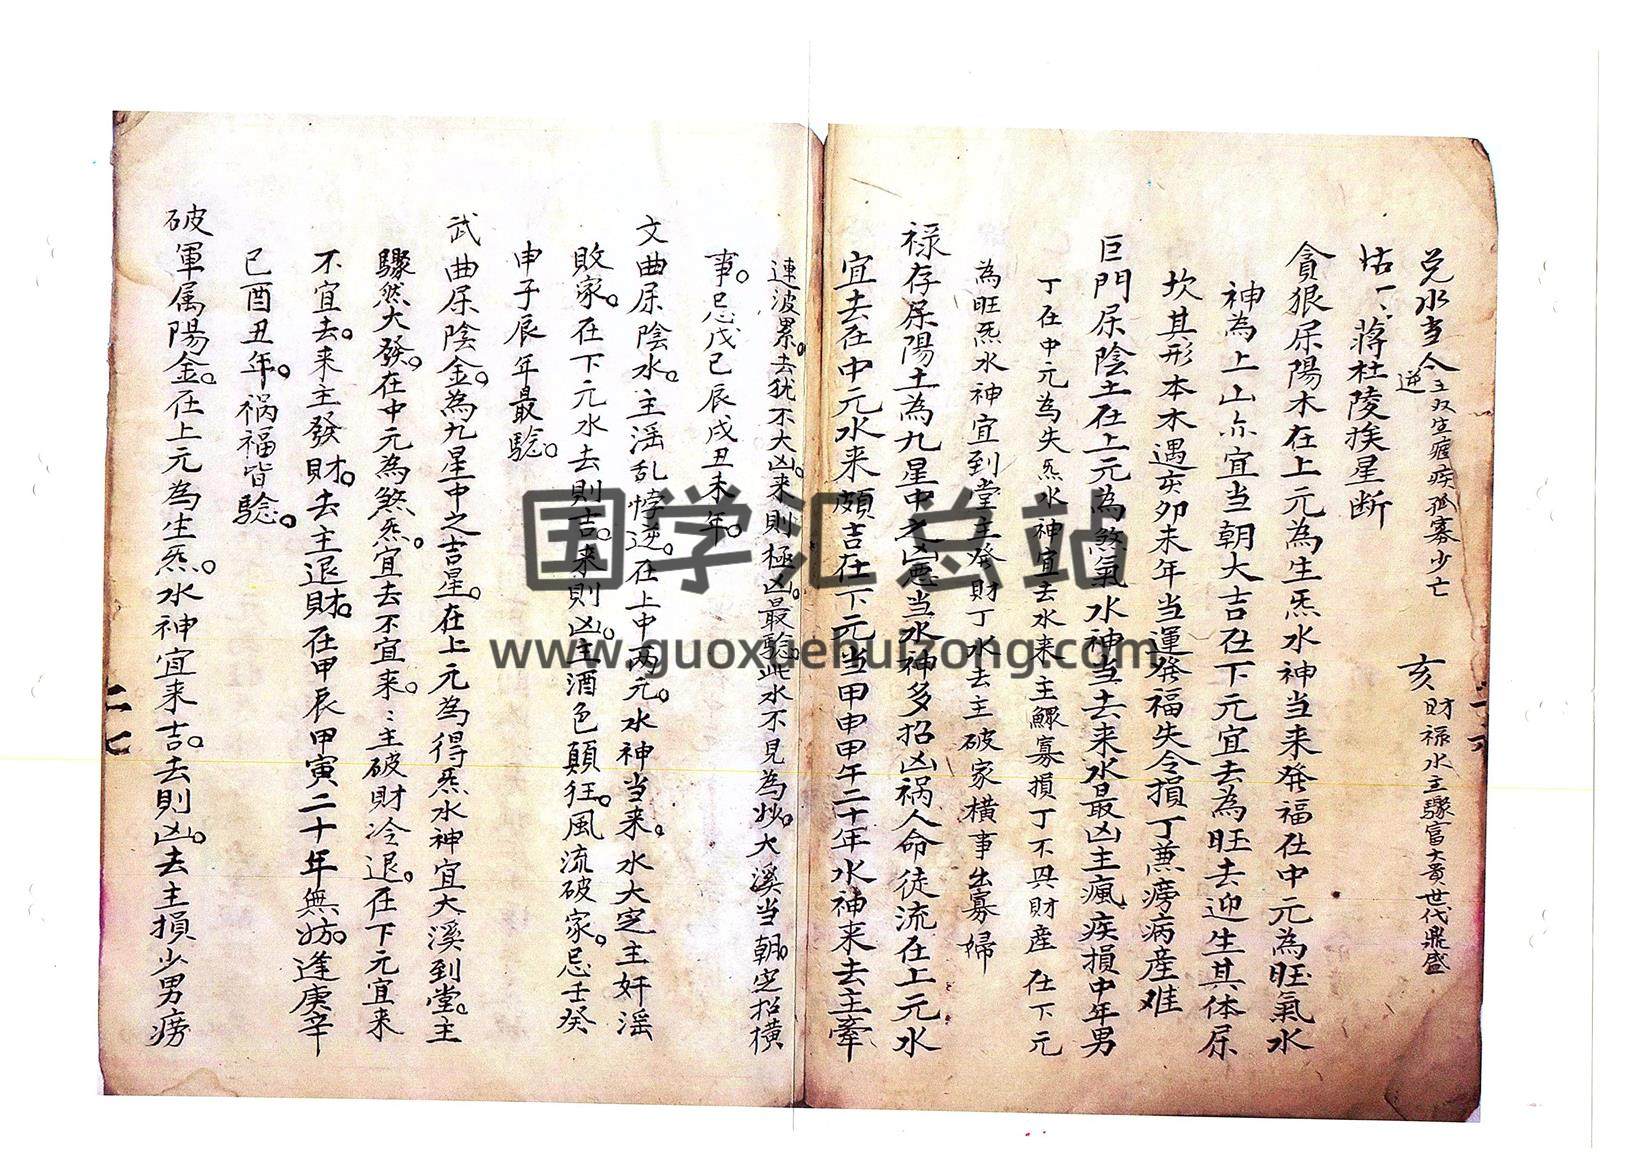 兑水当令主双生疲疾孤寡少亡 亥財禄水主驟富大貴世代鼎盛
逆
蒋杜陵挨星断
貪狠屬陽木在上元為生炁水神当来發福在中元為旺氣水
神為上山亦宜当朝大吉在下元宜去為旺去迎生其体屬
坎其形本木遇亥卯未年当運發福失令損丁兼癆病産难
巨門屬陰土在上元為煞氣水神当去来水最凶主瘋疾損中年男
丁在中元為失炁水神宜去水来主鰥寡損丁不興財産在下元
為旺炁水神宜到堂主發財丁水去主破家横事出寡婦
禄存屬陽土為九星中之凶惡当水神多招凶祸人命徒流在上元水
宜去在中元水来頗吉在下元当甲申甲午二十年水神来去主牽
連波累。去犹不大凶。来則極凶。最驗。此水不見為妙。大溪当朝。定招横
事。忌戊己辰戌丑未年。
文曲屬陰水。主滛乱悖逆。在上中两元。水神当来。水大定主奸滛
敗家。在下元水去則吉。来則凶。主酒色顛狂。風流破家。忌壬癸
申子辰年最驗。
武曲屬陰金。為九星中之吉星。在上元為得炁水神宜大溪到堂。主
驟然大發。在中元為煞炁。宜去不宜来。主破財冷退。在下元宜来
不宜去。来主發財。去主退財。在甲辰甲寅二十年無妨。逢庚辛
巳酉丑年。祸福皆驗。
破軍属陽金。在上元為生炁。水神宜来吉。去則凶。去主損少男癆
二七
国学汇总站
www.guoxuehuizong.com